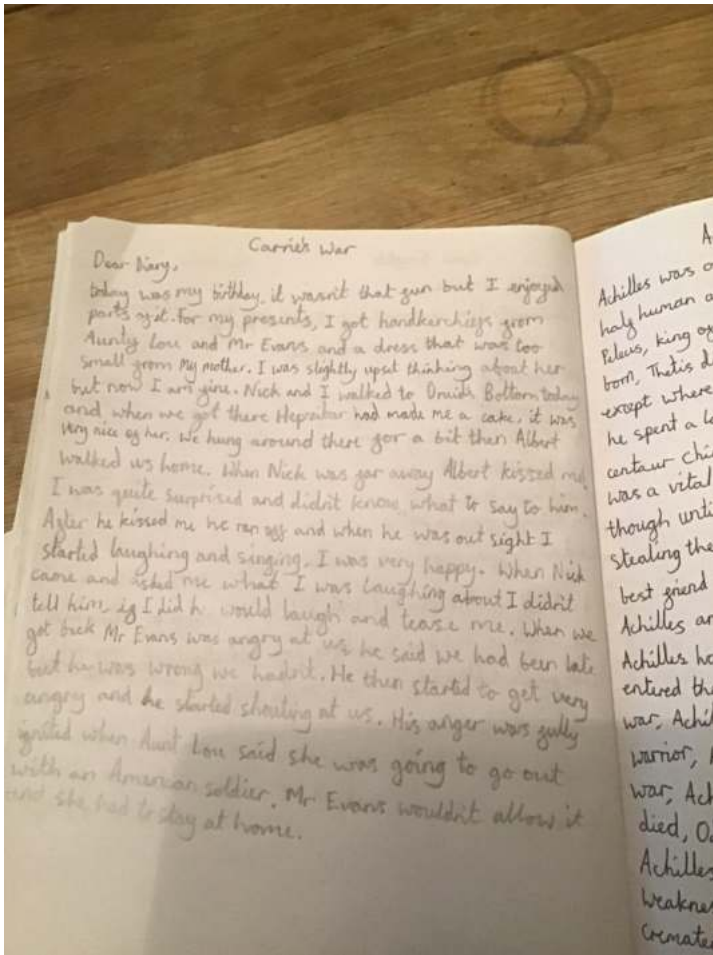 Carrie's War
Dear Diary,
today was my birthday, it wasn't that fun but I enjoyed
parts of it. For my presents, I got handkerchiefs from
Aunty Lou and Mr Evans and a dress that was too
small from my mother. I was slightly upset thinking about her
but now I am fine. Nick and I walked to Druids Bottom today
and when we got there Hepzibar had made me a cake, it was
very nice of her. We hung around there for a bit then Albert
walked us home. When Nick was far away Albert kissed me,
I was quite surprised and didn't know what to say to him.
After he kissed me he ran off and when he was out sight I
started laughing and singing. I was very happy. When Nick
came and asked me what I was laughing about I didn't
tell him, if I did h would laugh and tease me. When we
got back Mr Evans was angry at us, he said we had been late
but he was wrong we hadn't. He then started to get very
angry and he started shouting at us. His anger was fully
ignited when Aunt Lou said she was going to go out
with an American soldier. Mr Evans wouldn't allow it
and she had to stay at home.
A
Achilles was
half human
Peleus, king of
born, Thetis
except where
he spent a
centaur
was a vital
though
Stealing the
best friend
Achilles
Achilles
entered
war,
warrior,
war,
died,
Achilles